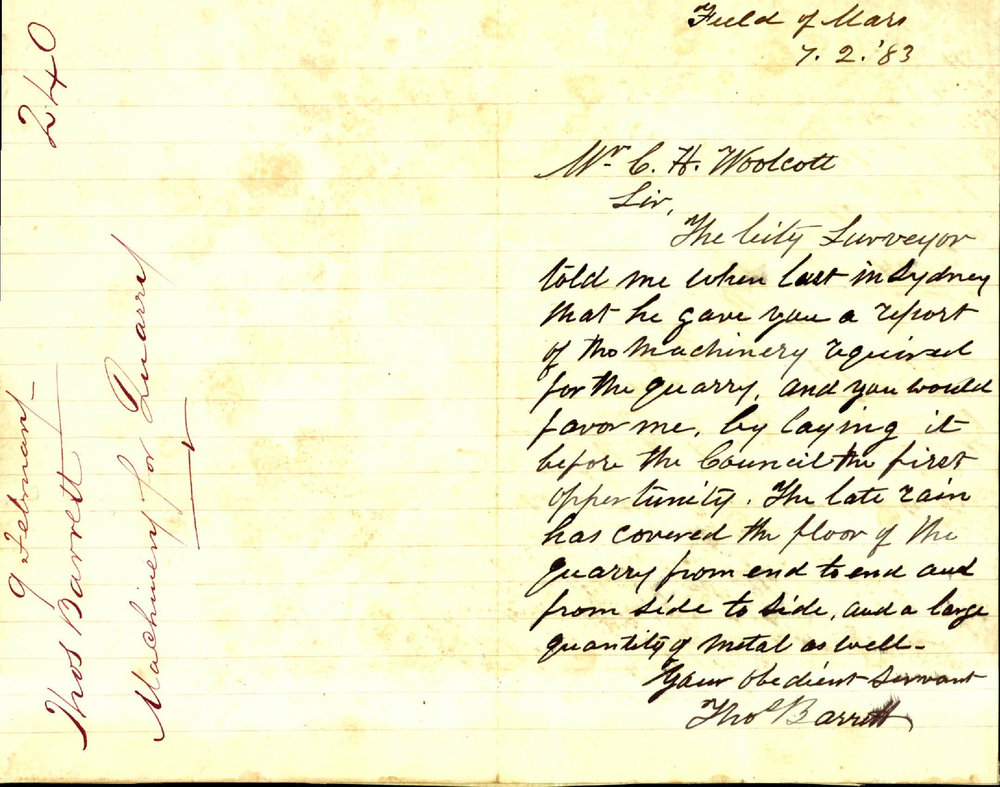 Field of Mars
7. 2. '83
Mr. C. H. Woolcott
Sir,
The City Surveyor
told me when last in Sydney
that he gave you a report
of the machinery required
for the quarry, and you would
favor me, by laying it
before the Council the first
opportunity. The late rain
has covered the floor of the
quarry from end to end and
from side to side, and a large
quantity of metal as well-
Your obedient servant
Thos Barrett
240
9 February
Thos Barrett
Machinery for Quarry